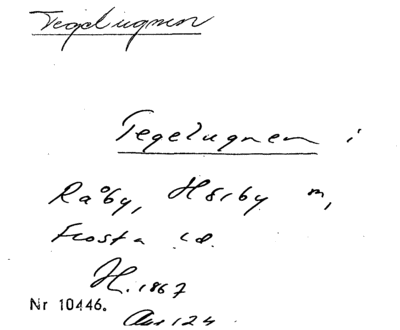 Tegelugnen
Tegelugnen i
Råby, Hörby m,
Frosta
H. 1867
Nr 10446.
124